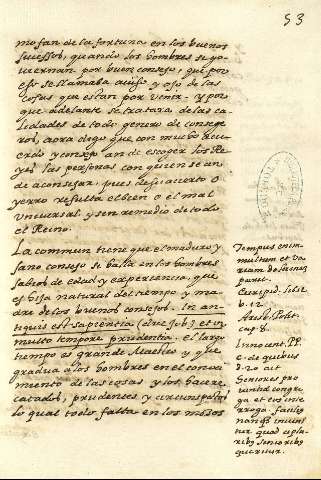 53
mofan de la fortuna en los buenos
sucessos, quando los hombres se go-
uiernan por buen consejo, que por
esso se llamaba auiso y ojo de las
cosas que estan por venir. y por
que adelante se tratara de las ca-
lidades de todo genero de conseje-
ros, aora digo que con mucho acu-
erdo y consejo an de escoger los Re-
yes las personas con quien se an
de aconsejar, pues de su acierto o
yerro resulta el bien o el mal
vniuersal, y sin remedio de todo
el Reino.
La commun tiene que el maduro y
sano consejo se halla en los hombres
sabios de edad y experiencia, que
es hija natural del tiempo y ma-
dre de los buenos consejos. In an-
tiquis est sapientia (dice Job.) et in
multo tempore prudentia. el largo
tiempo es grande Maestro y que
gradua a los hombres en el conoci-
miento de las cosas y los hace re-
catados, prudentes y circunspectos
lo qual todo falta en los mozos
Tempus enim
multum et va
riam
Euripid.
b. 12.
Arist. Polit.
cap. 8.
Innocent. PP.
c. de quibus
d. 20 ait
Seniores pro
uintiæ congre
ga et eos inte
rroga. facilius
namque inueni
tur quod a plu
ribus senioribus
queritur.